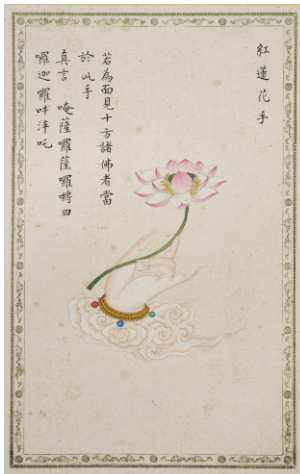 紅蓮花手
若為面見十方諸佛者當
於此手
真言 唵薩囉薩囉嚩日
囉迦囉吽泮吒